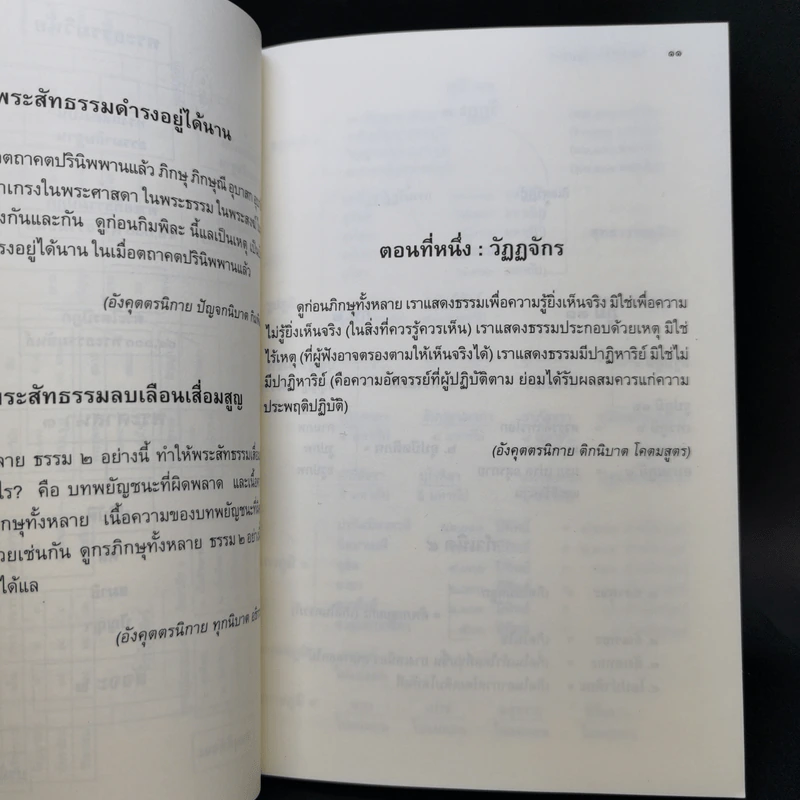 พระสัทธรรมดำรงอยู่ได้นาน
ตถาคตปรินิพพานแล้ว ภิกษุ ภิกษุณี อุบาสก
าเกรงในพระศาสดา ในพระธรรม ในพระสงฆ์
งกันและกัน ดูก่อนกิมพิละ นี้แลเป็นเหตุ
รงอยู่ได้นาน ในเมื่อตถาคตปรินิพพานแล้ว
(อังคุตตรนิกาย ปัญจกนิบาต
ระสัทธรรมลบเลือนเสื่อมสูญ
ลาย ธรรม ๒ อย่างนี้ ทำให้พระสัทธรรม
ไร? คือ บทพยัญชนะที่ผิดพลาด และ
กษุทั้งหลาย เนื้อความของบทพยัญชนะ
วยเช่นกัน ดูกรภิกษุทั้งหลาย ธรรม ๒ อย่าง
ได้แล
(อังคุตตรนิกาย ทุกนิบาต
๑๑
ตอนที่หนึ่ง : วัฏฏจักร
ดูก่อนภิกษุทั้งหลาย เราแสดงธรรมเพื่อความรู้ยิ่งเห็นจริง มิใช่เพื่อความ
ไม่รู้ยิ่งเห็นจริง (ในสิ่งที่ควรรู้ควรเห็น) เราแสดงธรรมประกอบด้วยเหตุ มิใช่
ไร้เหตุ (ที่ผู้ฟังอาจตรองตามให้เห็นจริงได้) เราแสดงธรรมมีปาฏิหาริย์ มิใช่ไม่
มีปาฏิหาริย์ (คือความอัศจรรย์ที่ผู้ปฏิบัติตาม ย่อมได้รับผลสมควรแก่ความ
ประพฤติปฏิบัติ)
(อังคุตตรนิกาย ติกนิบาต โคตมสูตร)